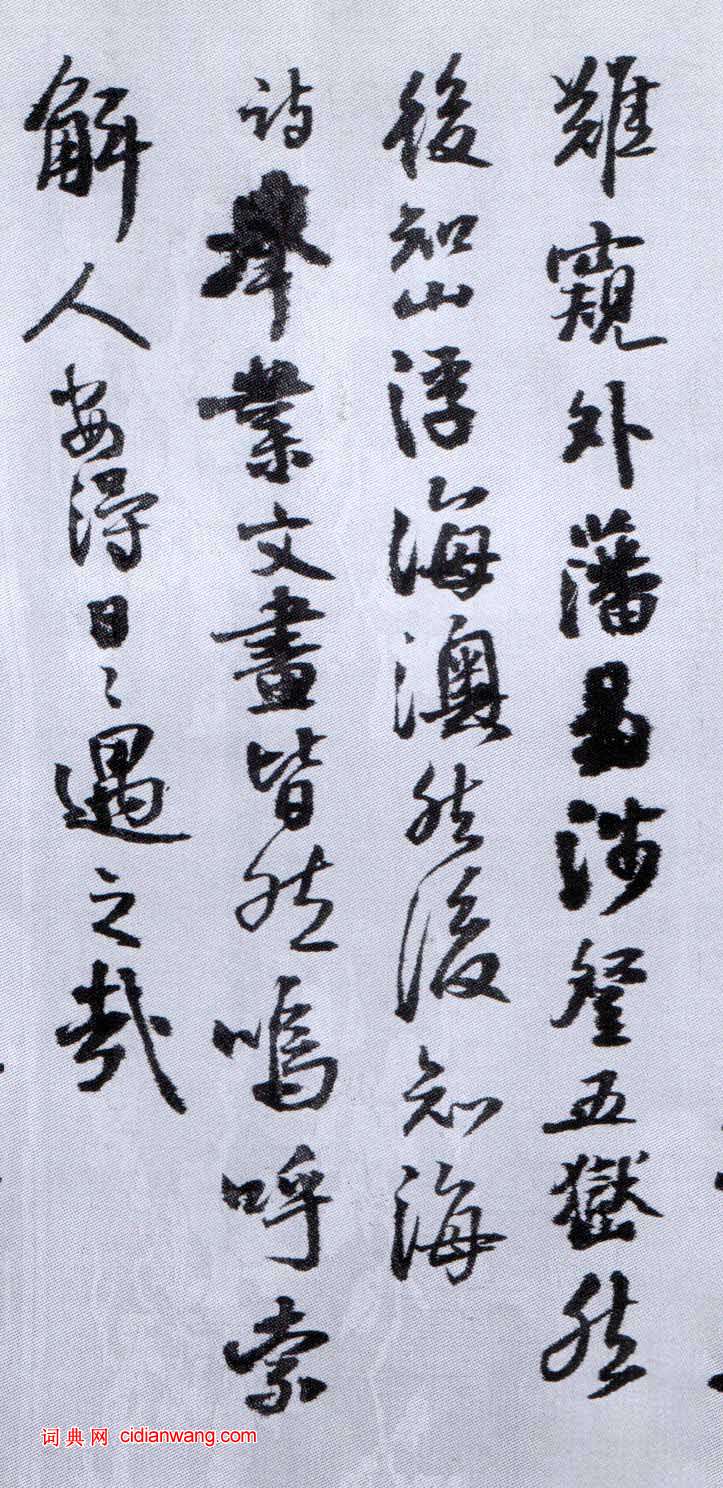 難窺外藩易涉登五嶽然
後知山浮海澳然後知海
詩舉業文畫皆然嗚呼索
解人安得日〻遇之哉
词典网 cidianwang.com